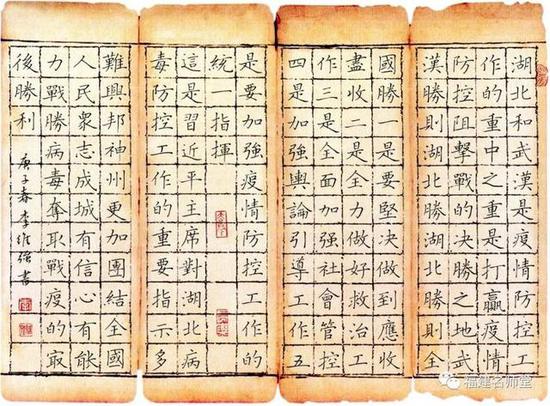 湖北和武漢是疫情防控工
作的重中之重是打贏疫情
防控阻擊戰的決勝之地武
漢勝則湖北勝湖北勝則全
國勝一是要堅決做到應收
盡收二是全力做好救治工
作三是全面加强社會管控
四是加強輿論引導工作五
是要加強疫情防控工作的
統一指揮
這是習近平主席對湖北病
毒防控工作的重要指示多
難興邦神州更加團結全國
人民衆志成城有信心有能
力戰勝病毒奪取戰疫的冣
後勝利
庚子春李强書
福建名师堂